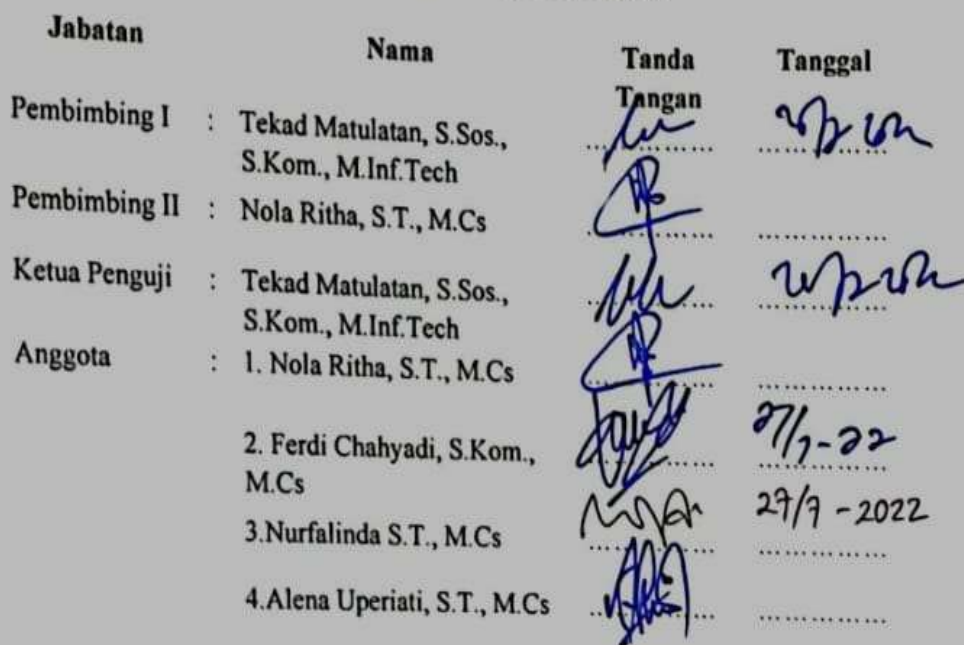 Jabatan Nama Tanda Tangan Tanggal
Pembimbing I : Tekad Matulatan, S.Sos.,
S.Kom., M.Inf.Tech
Pembimbing II : Nola Ritha, S.T., M.Cs
Ketua Penguji : Tekad Matulatan, S.Sos.,
S.Kom., M.Inf.Tech
Anggota : 1. Nola Ritha, S.T., M.Cs
2. Ferdi Chahyadi, S.Kom., 27/7-22
M.Cs
3.Nurfalinda S.T., M.Cs 27/7-2022
4.Alena Uperiati, S.T., M.Cs